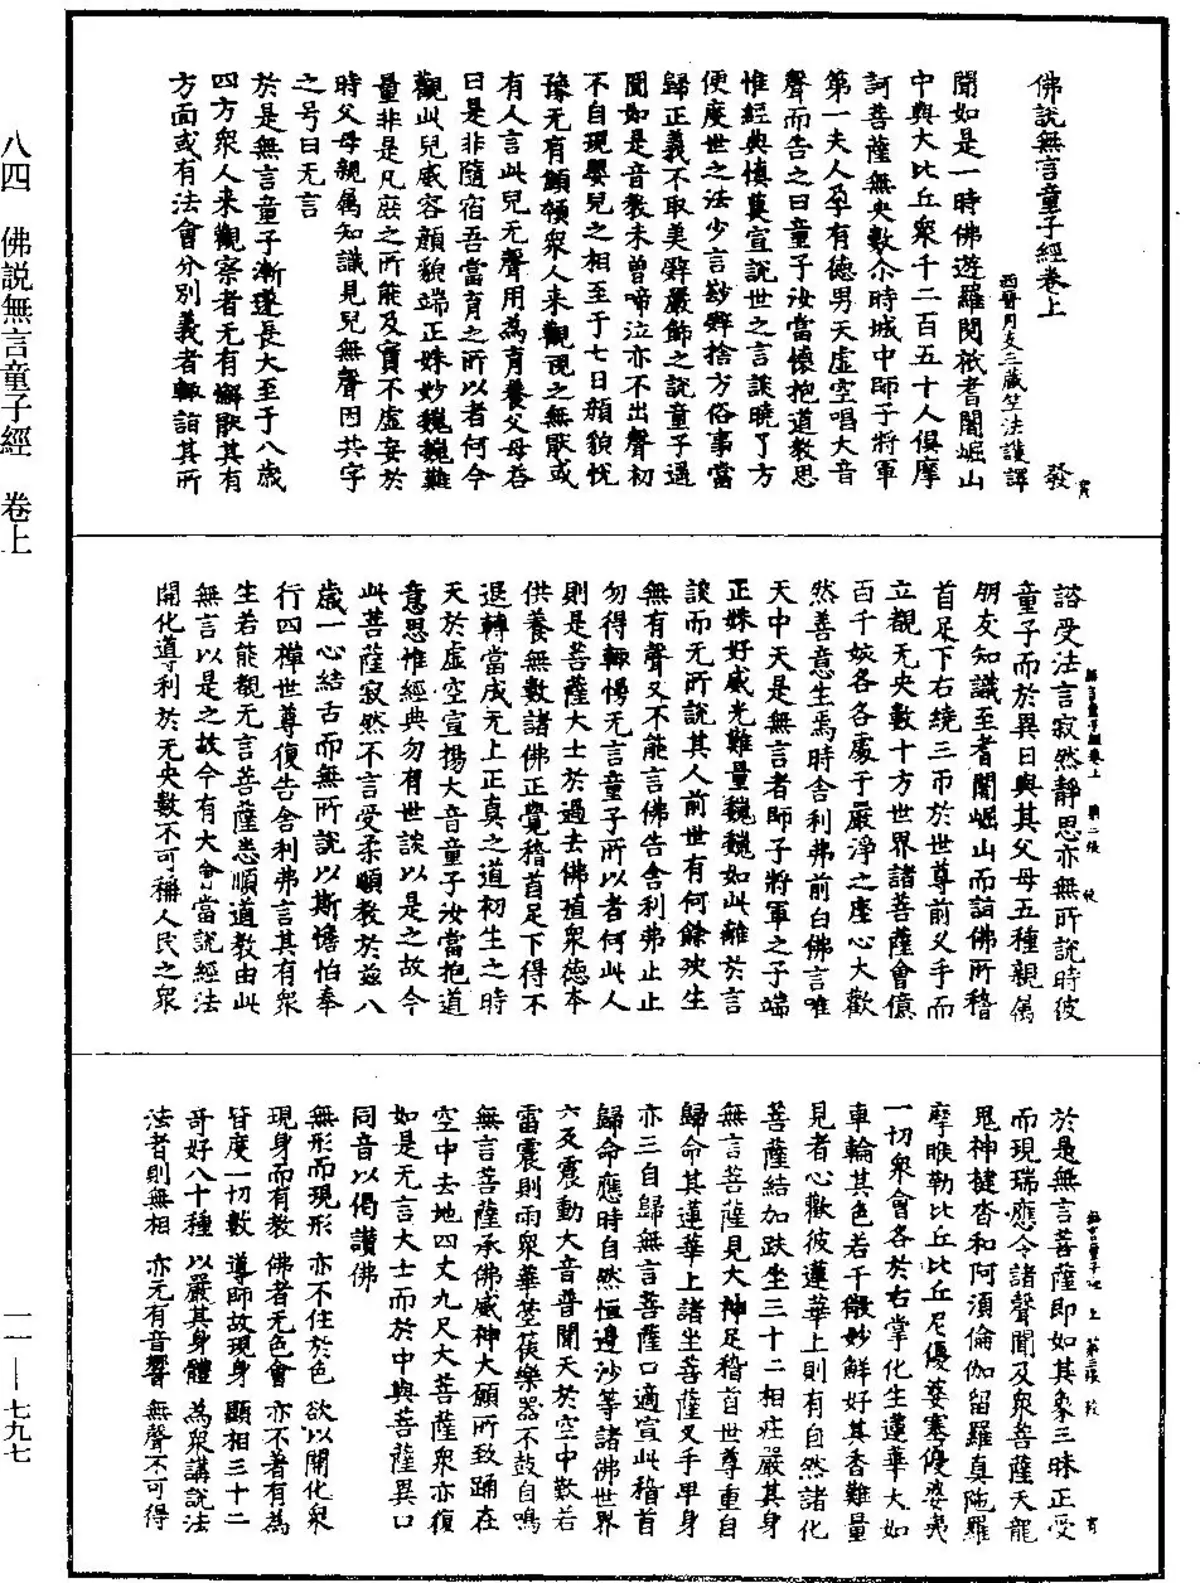 佛說無言童子經卷上　發
西晉月支三藏竺法護譯
聞如是一時佛遊羅閱祇耆闍崛山
中與大比丘眾千二百五十人俱摩
訶菩薩無央數尒時城中師子將軍
第一夫人孕有德男天虛空唱大音
聲而告之曰童子汝當懷抱道教思
惟經典慎莫宣說世之言談曉了方
便度世之法少言尠辭捨方俗事當
歸正義不取美辭嚴飾之說童子適
聞如是音教未曾啼泣亦不出聲初
不自現嬰兒之相至于七日顏貌悅
豫无有顦顇眾人来觀視之無猒或
有人言此兒无聲用為育養父母荅
曰是非隨宿吾當育之所以者何今
觀此兒威容顏貌端正姝妙巍巍難
量非是凡庶之所能及實不虛妄於
時父母親属知識見兒無聲因共字
之号曰无言
於是無言童子漸遂長大至于八歲
四方眾人来觀察者无有懈猒其有
方面或有法會分別義者輒詣其所
諮受法言寂然靜思亦無所說時彼
童子而於異日與其父母五種親属
朋友知識至耆闍崛山而詣佛所稽
首足下右繞三帀於世尊前叉手而
立觀无央數十方世界諸菩薩會億
百千姟各各處于嚴淨之座心大歡
然善意生焉時舍利弗前白佛言唯
天中天是無言者師子將軍之子端
正姝好威光難量巍巍如此離於言
談而无所說其人前世有何餘殃生
無有聲又不能言佛告舍利弗止止
勿得輒慢无言童子所以者何此人
則是菩薩大士於過去佛殖眾德本
供養無數諸佛正覺稽首足下得不
退轉當成无上正真之道初生之時
天於虛空宣揚大音童子汝當抱道
意思惟經典勿有世談以是之故今
此菩薩寂然不言受柔順教於茲八
歲一心結舌而無所說以斯憺怕奉
行四禪世尊復告舍利弗言其有眾
生若能觀无言菩薩悉順道教由此
無言以是之故今有大會當說經法
開化導利於无央數不可稱人民之眾
於是無言菩薩即如其象三昧正受
而現瑞應令諸聲聞及眾菩薩天龍
鬼神揵沓和阿須倫伽留羅真陁羅
摩睺勒比丘比丘尼優婆塞優婆夷
一切眾會各於右掌化生蓮華大如
車輪其色若干微妙鮮好其香難量
見者心歡彼蓮華上則有自然諸化
菩薩結加趺坐三十二相莊嚴其身
無言菩薩見大神足稽首世尊重自
歸命其蓮華上諸坐菩薩叉手甲身
亦三自歸無言菩薩口適宣此稽首
歸命應時自然恒邊沙等諸佛世界
六反震動大音普聞天於空中歎若
雷震則雨眾華箜篌樂器不鼓自鳴
無言菩薩承佛威神大願所致踊在
空中去地四丈九尺大菩薩眾亦復
如是无言大士而於中與菩薩異口
同音以偈讚佛
無形而現形　亦不住於色　欲以開化眾
現身而有教　佛者无色會　亦不著有為
皆度一切數　導師故現身　顯相三十二
奇好八十種　以嚴其身體　為眾講說法
法者則無相　亦无有音響　無聲不可得
八四　佛説無言童子經　卷上
一一—七九七